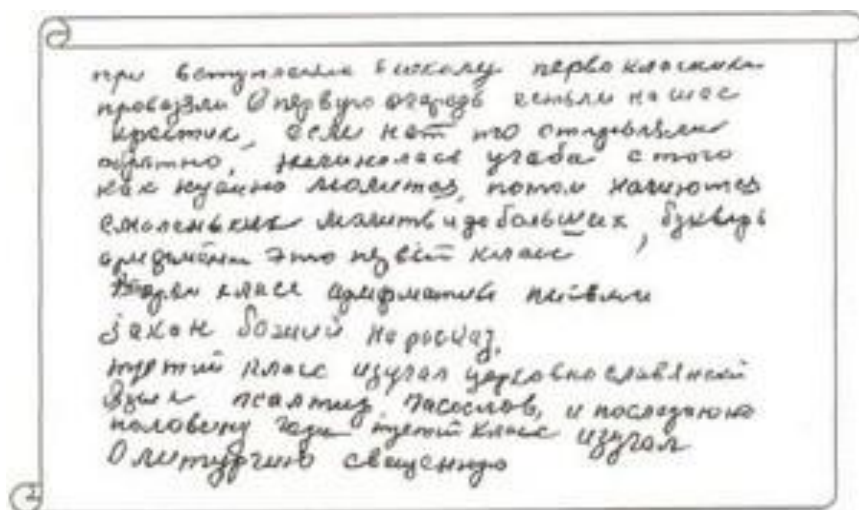 при вступлении в школу первоклассника
проверяли в первую очередь есть ли на шее
крестик, если нет то отправляли
обратно, начиналась учеба с того
как нужно молится, потом
с маленьких молитв и до больших, букварь
это первый класс
Второй класс
закон божий на росказ.
третий класс изучал церковно славянский
язык псалтир, часослов, и последнюю
половину года третий класс изучал
Олитургию священую